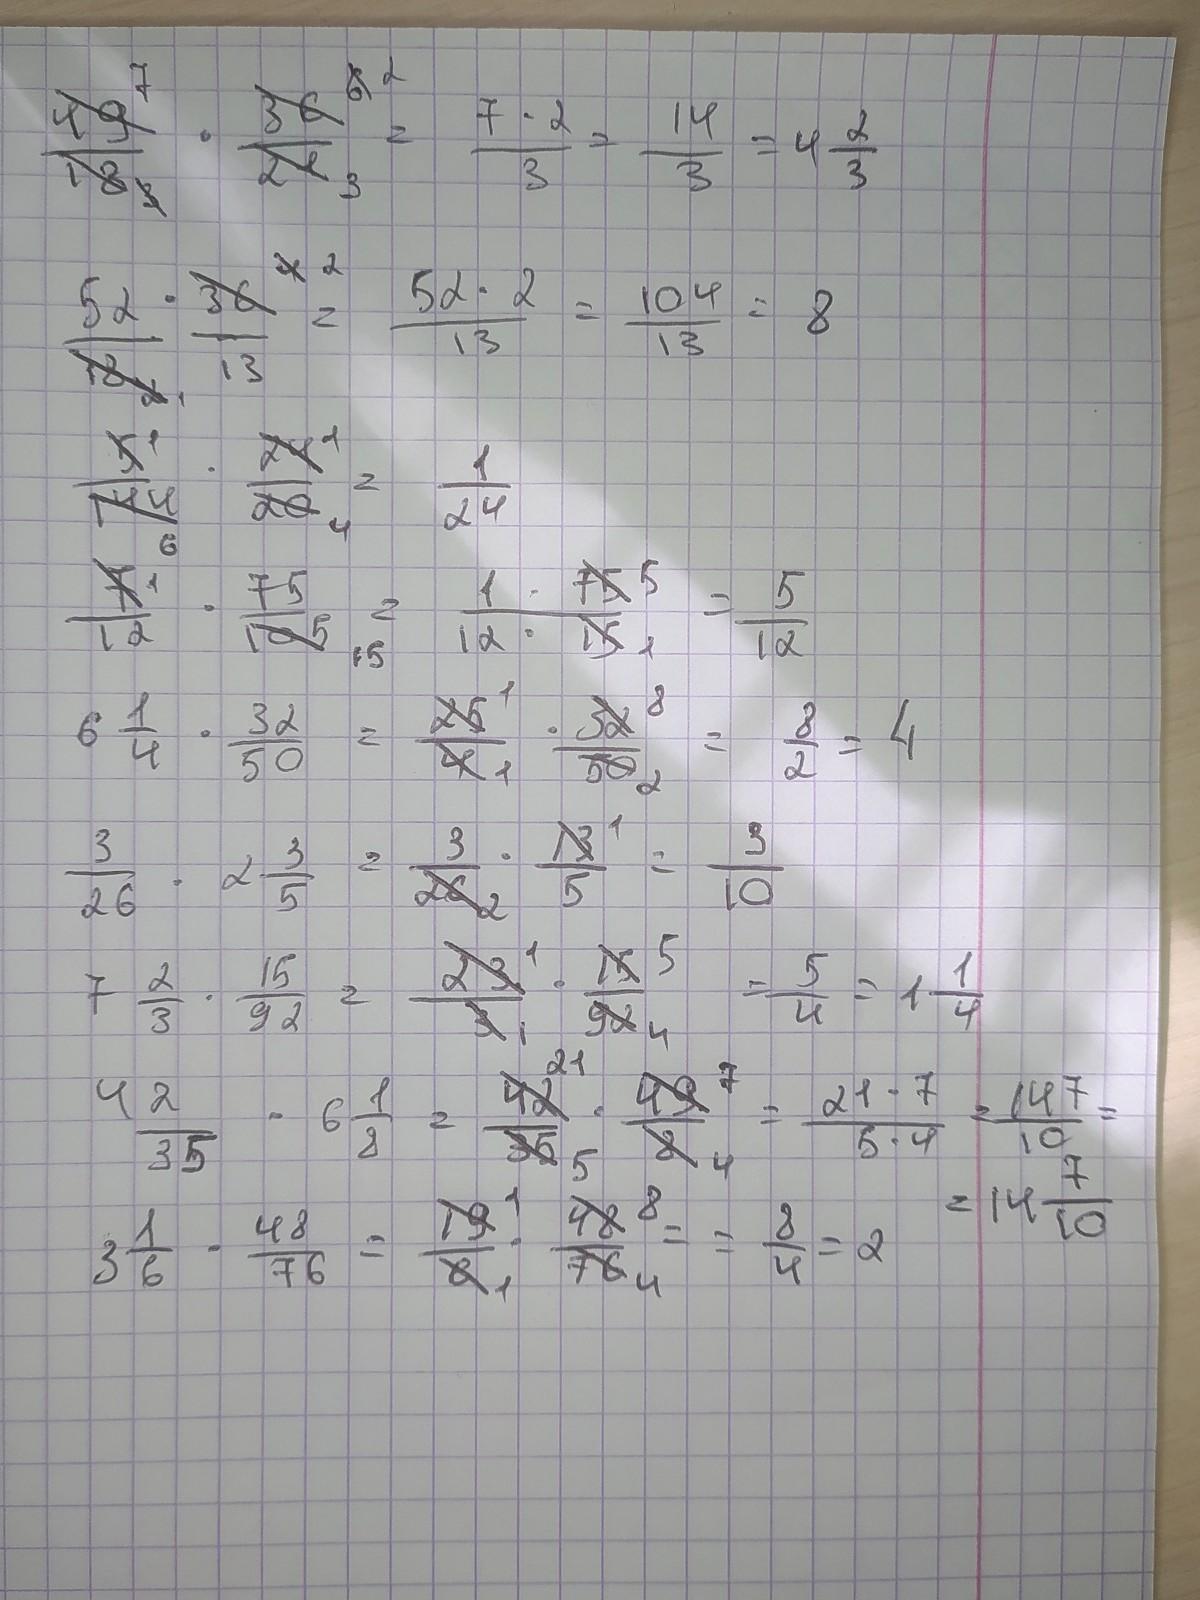 49/18 · 36/21 = 7·2/3 = 14/3 = 4 2/3
52/18 · 36/13 = 52·2/13 = 104/13 = 8
5/144 · 24/20 = 1/24
7/12 · 75/105 = 1·75/12·15 = 5/12
6 1/4 · 32/50 = 25/4 · 32/50 = 8/2 = 4
3/26 · 2 3/5 = 3/26 · 13/5 = 3/10
7 2/3 · 15/92 = 23/3 · 15/92 = 5/4 = 1 1/4
4 2/35 · 6 1/8 = 142/35 · 49/8 = 21·7/5·4 = 147/10 =
= 14 7/10
3 1/6 · 48/76 = 19/6 · 48/76 = = 8/4 = 2